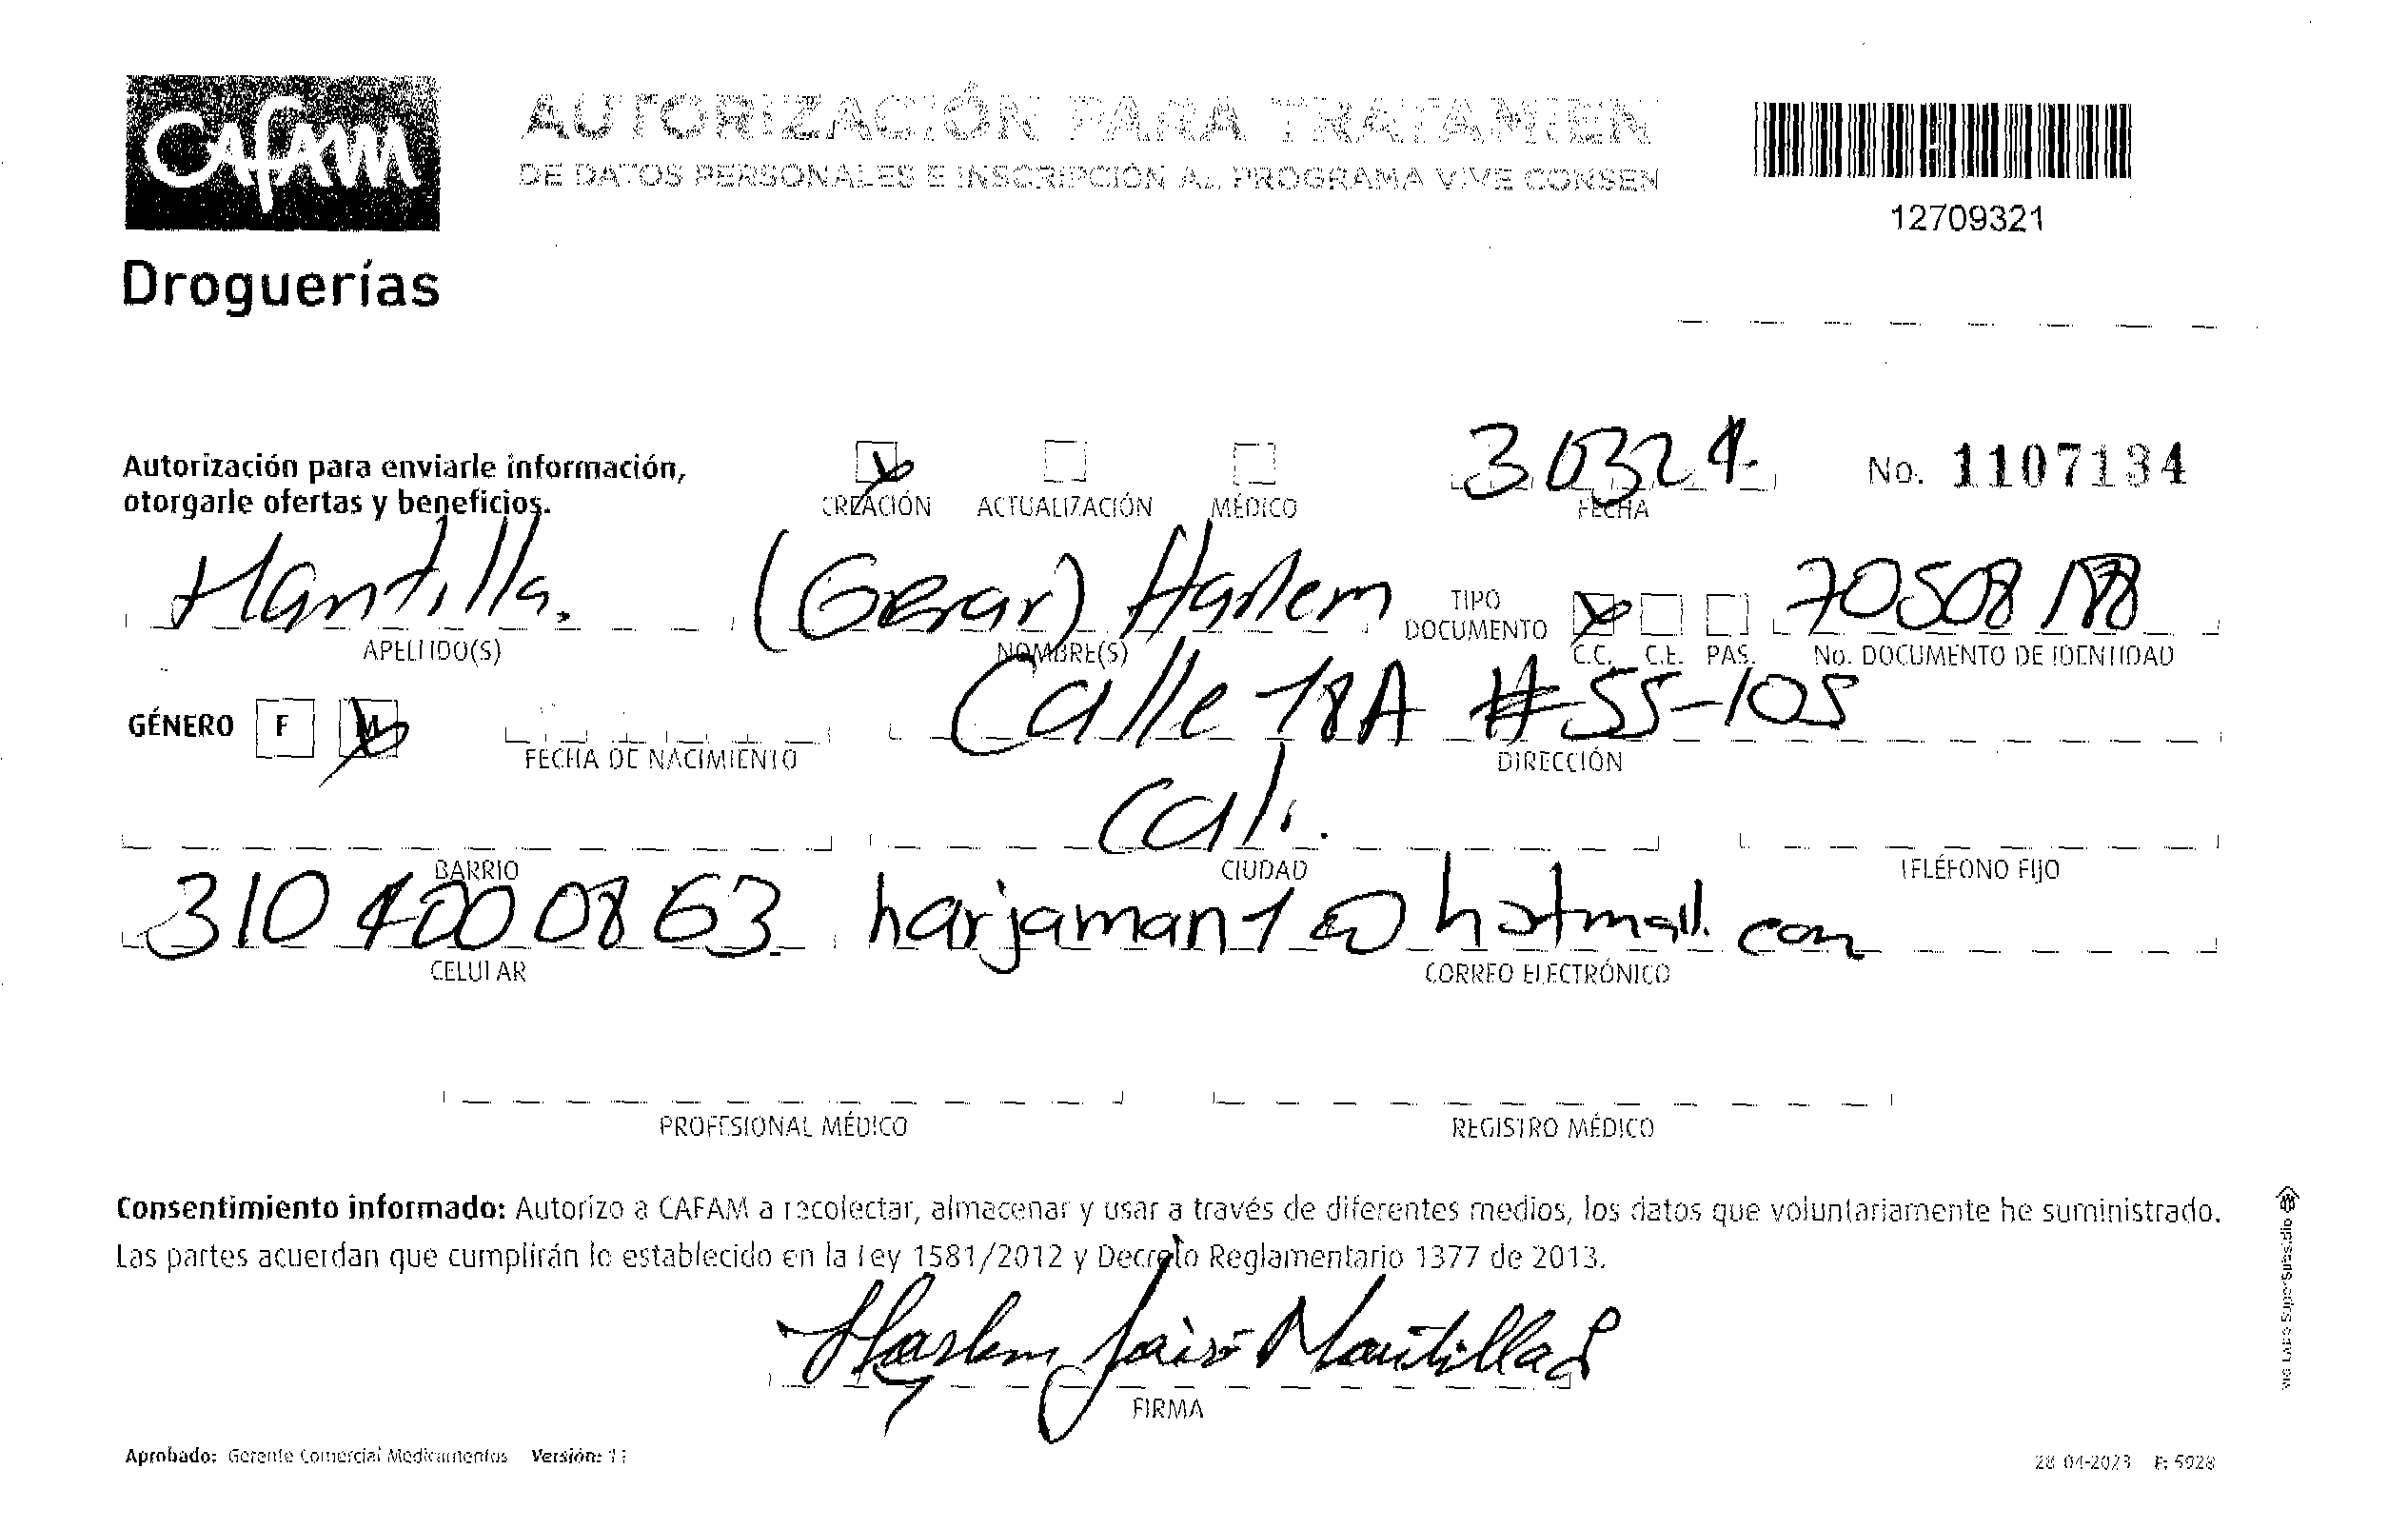 CAfAM
Droguerías
AUTORIZACIÓN PARA TRATAMIEN
DE DATOS PERSONALES E INSCRIPCIÓN AL PROGRAMA VIVE CONSEN
12709321
Autorización para enviarle información,
otorgarle ofertas y beneficios.
CREACIÓN ACTUALIZACIÓN MÉDICO
30324
FECHA
No. 1107134
Mantilla. (Gerar) Harlem
APELLIDO(S) NOMBRE(S)
TIPO
DOCUMENTO
C.C. C.E. PAS.
70508188
No. DOCUMENTO DE IDENTIDAD
GÉNERO F M
FECHA DE NACIMIENTO
Calle 18A #55-105
DIRECCIÓN
Cali.
BARRIO CIUDAD TELÉFONO FIJO
310 400 0863 harjaman1@hotmail.com
CELULAR CORREO ELECTRÓNICO
PROFESIONAL MÉDICO REGISTRO MÉDICO
Consentimiento informado: Autorizo a CAFAM a recolectar, almacenar y usar a través de diferentes medios, los datos que voluntariamente he suministrado.
Las partes acuerdan que cumplirán lo establecido en la Ley 1581/2012 y Decreto Reglamentario 1377 de 2013.
Harlem Jairo Mantilla
FIRMA
Aprobado: Gerente Comercial Medicamentos Versión: 11
28-04-2023 F: 5928